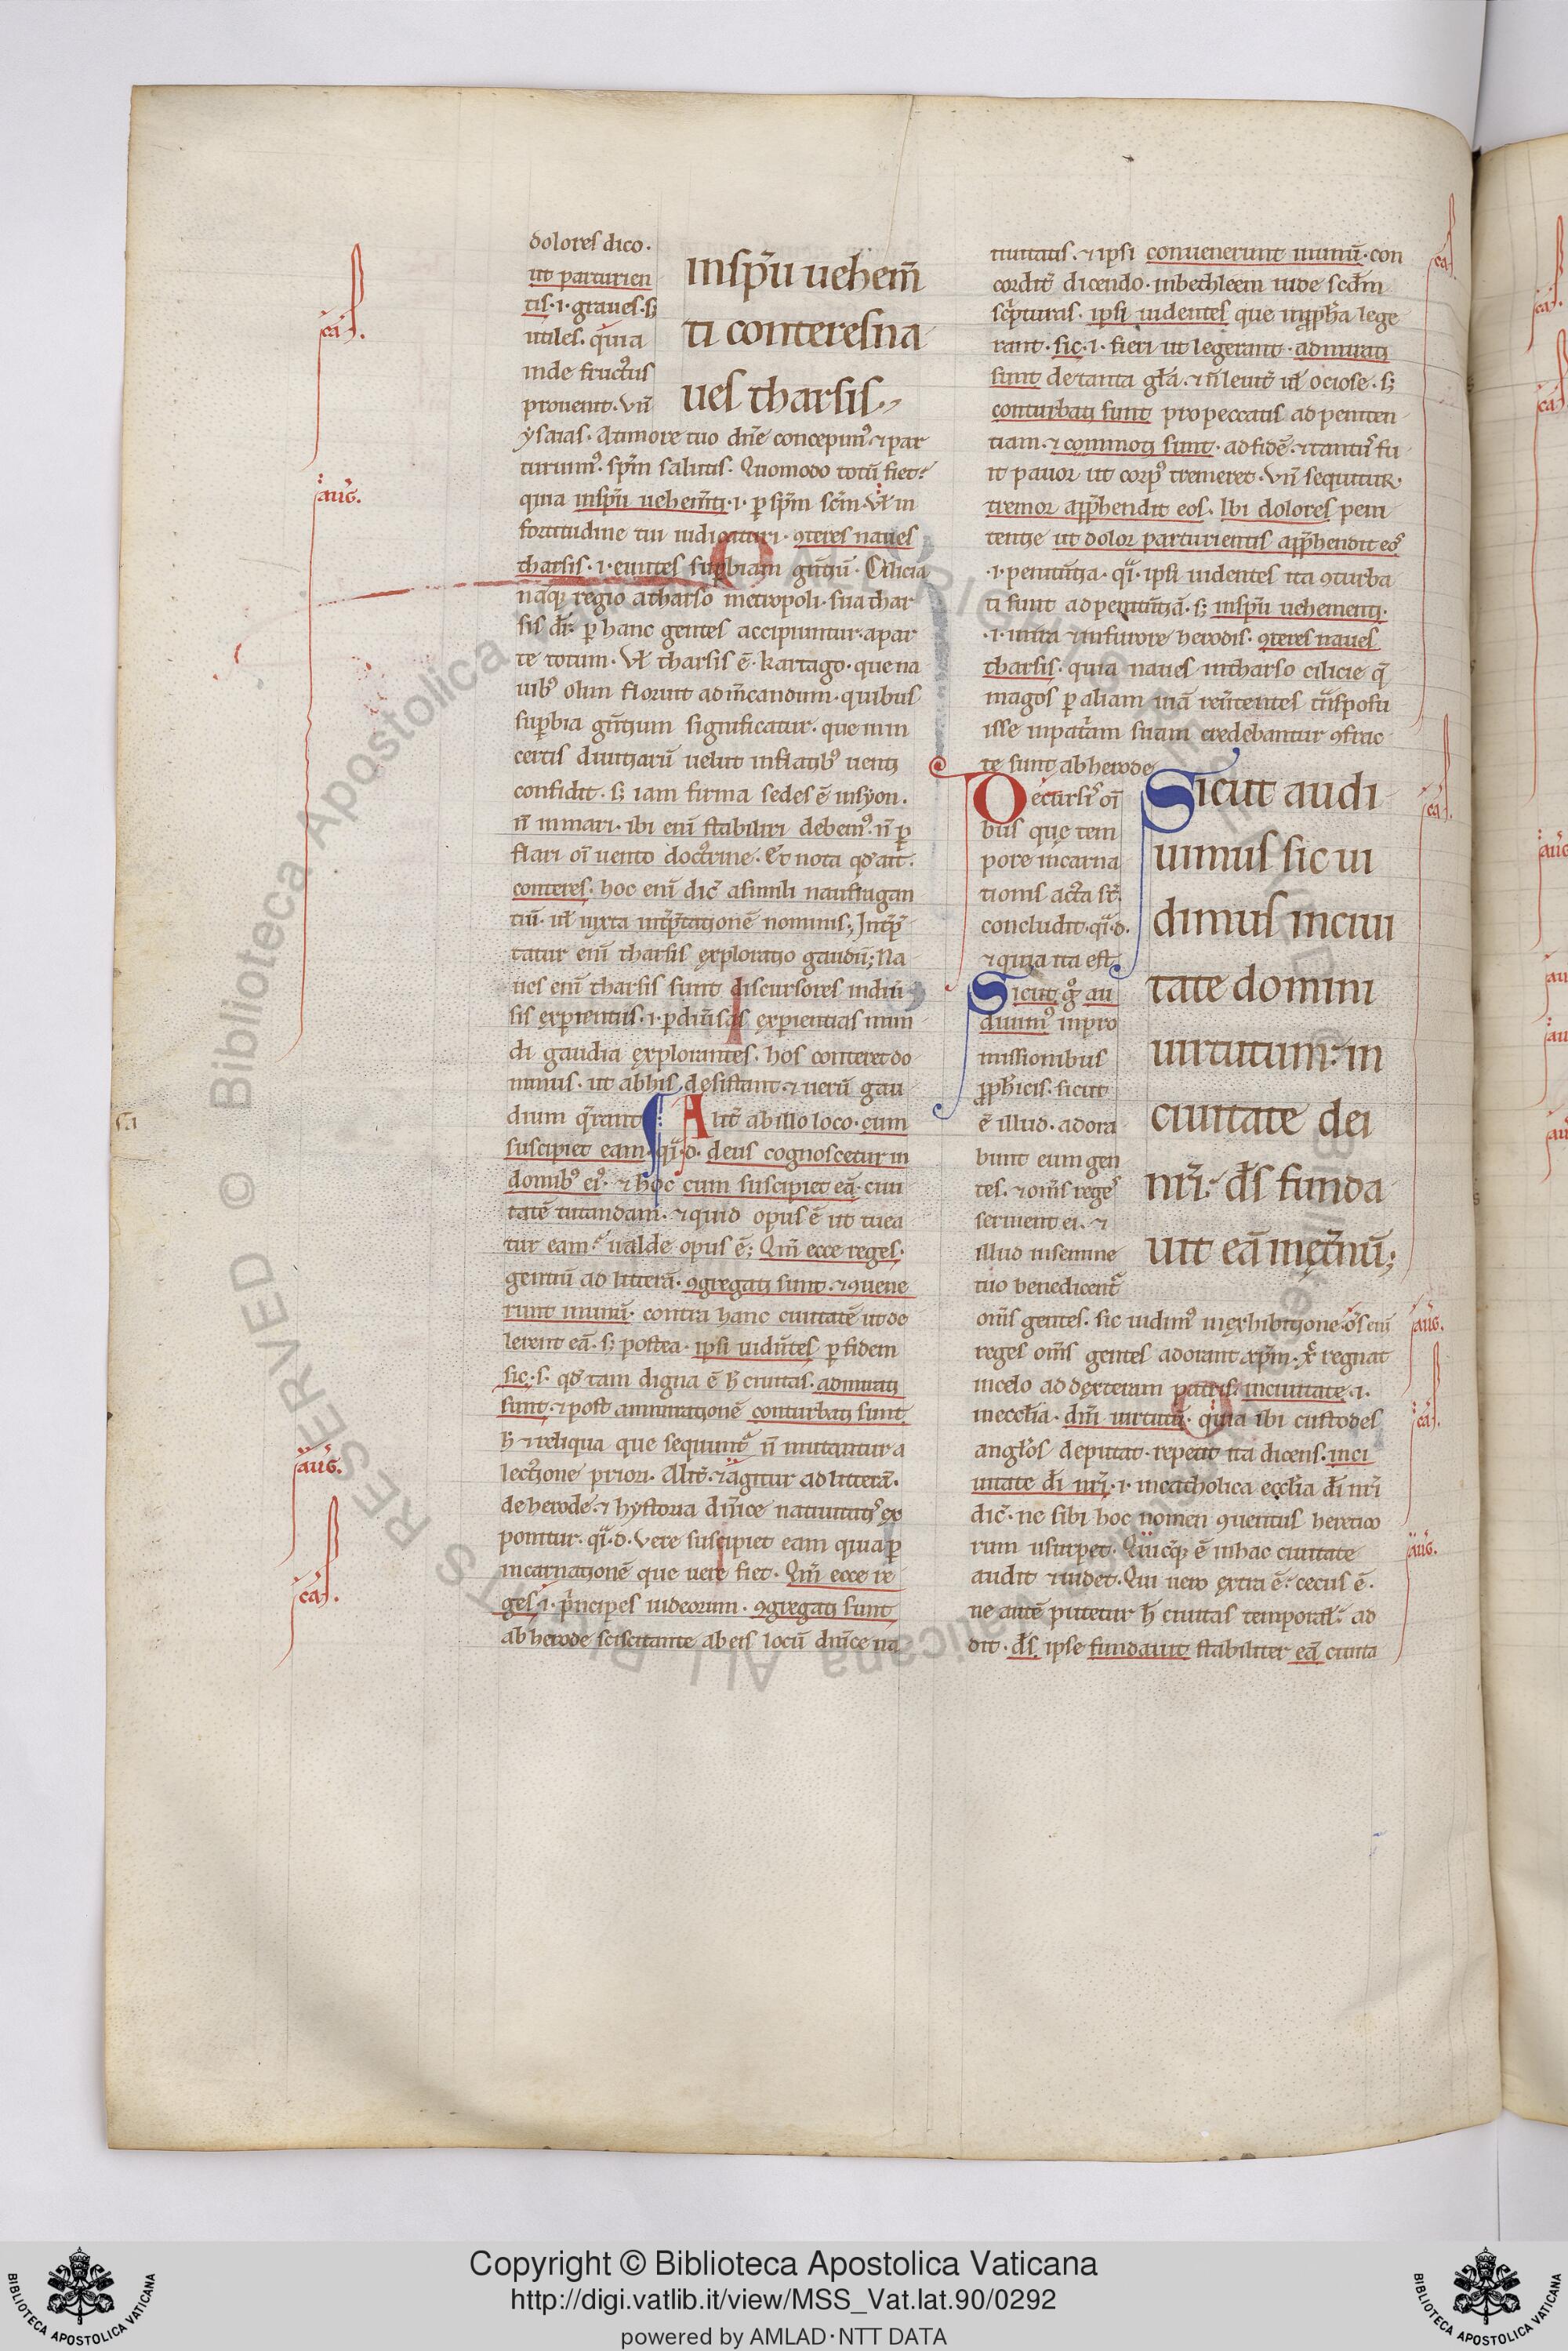 dolores dico.
ut parturien
tis .i. graues. s;
utiles. quia
inde fructus
prouenit. Vn̄
in sp̄u uehem̄
ti conteres na
ues tharsis.
ysaias. A timore tuo dn̄e concepimꝰ ⁊ par
turiuimꝰ sp̄m salutis. Quomodo totū fiet?
quia in sp̄u uehem̄ti .i. ꝑ sp̄m sc̄m. Vl̄ in
fortitudine tui iudicaturi. ꝯteres naues
tharsis .i. euittes suꝑbiam gn̄tiū. Cilicia
naq; regio a tharso metropoli. sua thar
sis dr̄. ꝑ hanc gentes accipiuntur. a par
te totum. Vl̄ tharsis ē kartago. que na
uibꝰ olim floruit ad m̄candum. quibus
suꝑbia gn̄tium significatur. que in in
certis diuitiarū uelut in flatibꝰ uenti
confidit. s; iam firma sedes ē in syon.
n̄ in mari. ibi eni stabiliri debemꝰ. n̄ ꝑ
flari oī uento doctrine. Et nota qd̄ ait.
conteres. hoc enī dic̄ a simili naufragan
tiū. ul̄ iuxta int̄p̄tationē nominis. Int̄p̄
tatur enī tharsis exploratio gaudii; Na
ues enī tharsis sunt discursores in diu̅
sis exꝑientiis .i. ꝑ diu̅sas exꝑientias mun
di gaudia explorantes. hos conteret do
minus. ut ab his desistant ⁊ uerū gau
dium q̄rant. Alit̄ ab illo loco. cum
suscipiet eam. q̄i.d. deus cognoscetur in
domibꝰ eiꝰ. ⁊ hoc cum suscipiet eā. ciui
tatē tutandam. ⁊ quid opus ē ut tuea
tur eam? ualde opus ē; Qm̄ ecce reges.
gentiū ad litterā. ꝯgregati sunt. ⁊ ꝯuene
runt in unū. contra hanc ciuitatē ut de
lerent eā. s; postea. ipsi uidn̄tes ꝑ fidem
sic. s. qd̄ tam digna ē h̄ ciuitas. admirati
sunt. ⁊ post ammirationē conturbati sunt.
h̄ ⁊ reliqua que sequunt̄ n̄ mutantur a
lectione priori. Alit̄. ⁊ agitur ad litterā.
de herode. ⁊ hystoria dn̄ice natiuitatis ex
ponitur. q̄i.d. vere suscipiet eam quia ꝑ
incarnationē que uere fiet. Qm̄ ecce re
ges .i. p̄ncipes iudeorum. ꝯgregati sunt
ab herode sciscitante ab eis locū dn̄ice na
tiuitatis. ⁊ ipsi conuenerunt in unū. con
cordit̄ dicendo. in bethleem iude scd̄m
sc̄pturas. ipsi uidentes que in ꝓph̄a lege
rant. sic .i. fieri ut legerant. admirati
sunt de tanta gl̄a. ⁊ n̄ leuit̄ ul̄ ociose. s;
conturbati sunt pro peccatis ad peniten
tiam. ⁊ commoti sunt. ad fidē. ⁊ tantꝰ fu
it pauor ut corpꝰ tremeret. Vn̄ sequitur.
tremor app̄hendit eos. Ibi dolores peni
tentie ut dolor parturientis app̄hendit eos
.i. penitn̄tia. q̄i. ipsi uidentes ita ꝯturba
ti sunt ad penitn̄tiā. s; in sp̄u uehementi.
.i. in ira ⁊ in furore herodis. ꝯteres naues
tharsis. quia naues in tharso cilicie q̄
magos ꝑ aliam uiā reu̅tentes tn̄sposu
isse in patr̄am suam credebantur ꝯfrac
te sunt ab herode
Decursis oī
bus que tem
pore incarna
tionis acta st̄.
concludit. q̄i.d.
⁊ quia ita est.
Sicut g̊ au
diuimꝰ in pro
missionibus
ꝓph̄icis. sicut
ē illud. adora
bunt eum gen
tes. ⁊ om̄s reges
seruient ei. ⁊
illud in semine
tuo benedicent̄
Sicut audi
uimus sic ui
dimus in ciui
tate domini
uirtutum: in
ciuitate dei
nr̄i. ds̄ funda
uit eā in et̄nū;
om̄s gentes. sic uidimꝰ in exhibitione. om̄s eni
reges om̄s gentes adorant xp̄m. xp̄c regnat
in celo ad dexteram patris. in ciuitate .i.
in eccl̄ia. dn̄i uirtutū. quia ibi custodes
angl̄os deputat. repetit ita dicens. in ci
uitate dī nr̄i .i. in catholica eccl̄ia dī nr̄i
dic̄. ne sibi hoc nomen ꝯuentus heretico
rum usurpet. Quicq; ē in hac ciuitate
audit ⁊ uidet. Qui uero extra ē: cecus ē.
ne autē putetur h̄ ciuitas temporal̄. ad
dit. ds̄ ipse fundauit stabiliter eā ciuita
cas̄.
auḡ.
auḡ.
cas̄.
cas̄
cas̄
auḡ.
cas̄.
auḡ.
© Biblioteca Apostolica Vaticana ALL RIGHTS RESERVED
Copyright © Biblioteca Apostolica Vaticana
http://digi.vatlib.it/view/MSS_Vat.lat.90/0292
powered by AMLAD·NTT DATA
BIBLIOTECA APOSTOLICA VATICANA
BIBLIOTECA APOSTOLICA VATICANA